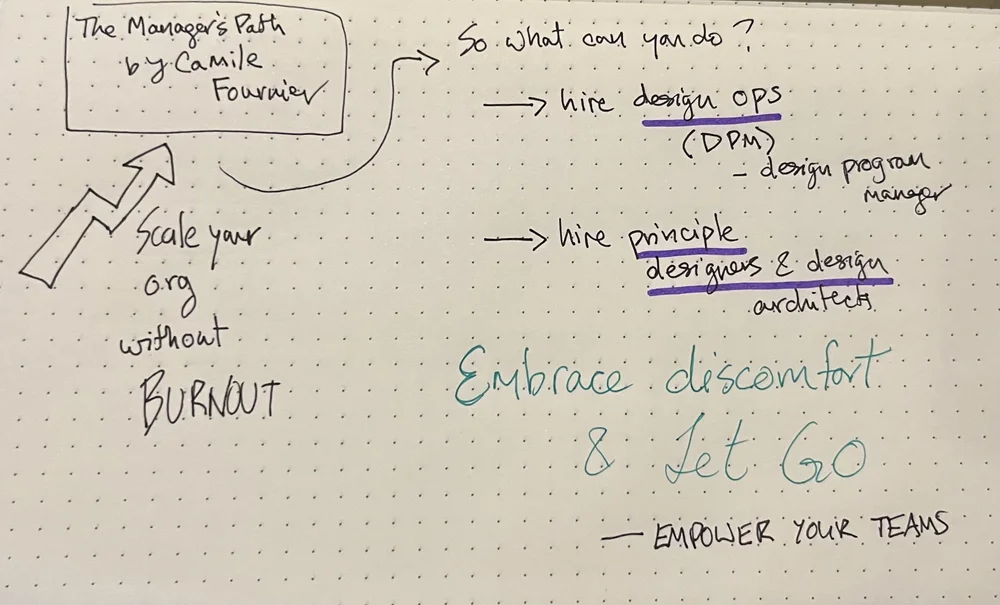 The Manager's Path
by Camile
Fournier
Scale your
org
without
BURNOUT
So what can you do?
→ hire design ops
(DPM)
- design program
manager
→ hire principle
designers & design
architects
Embrace discomfort
& Let GO
— EMPOWER YOUR TEAMS